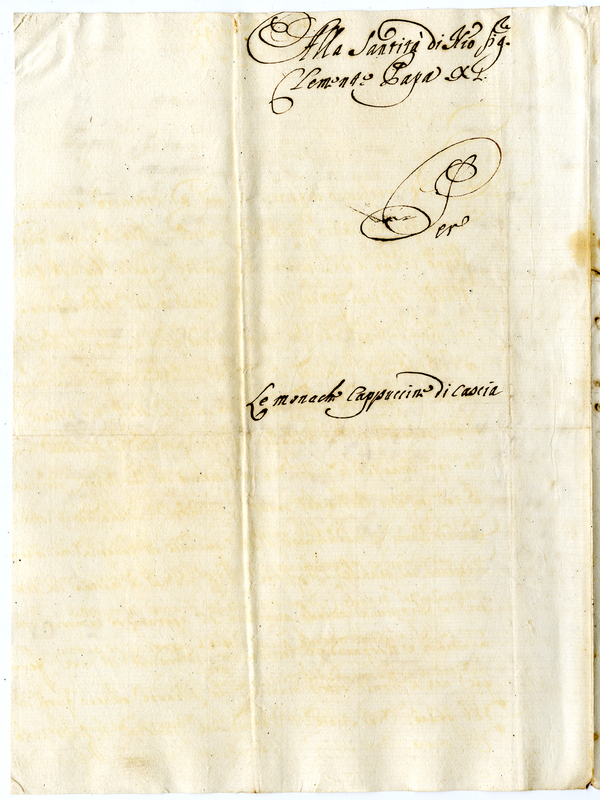 Alla Santità di Nro Sigre
Clemente Papa XI.
Per
Le monache Cappuccine di Cascia